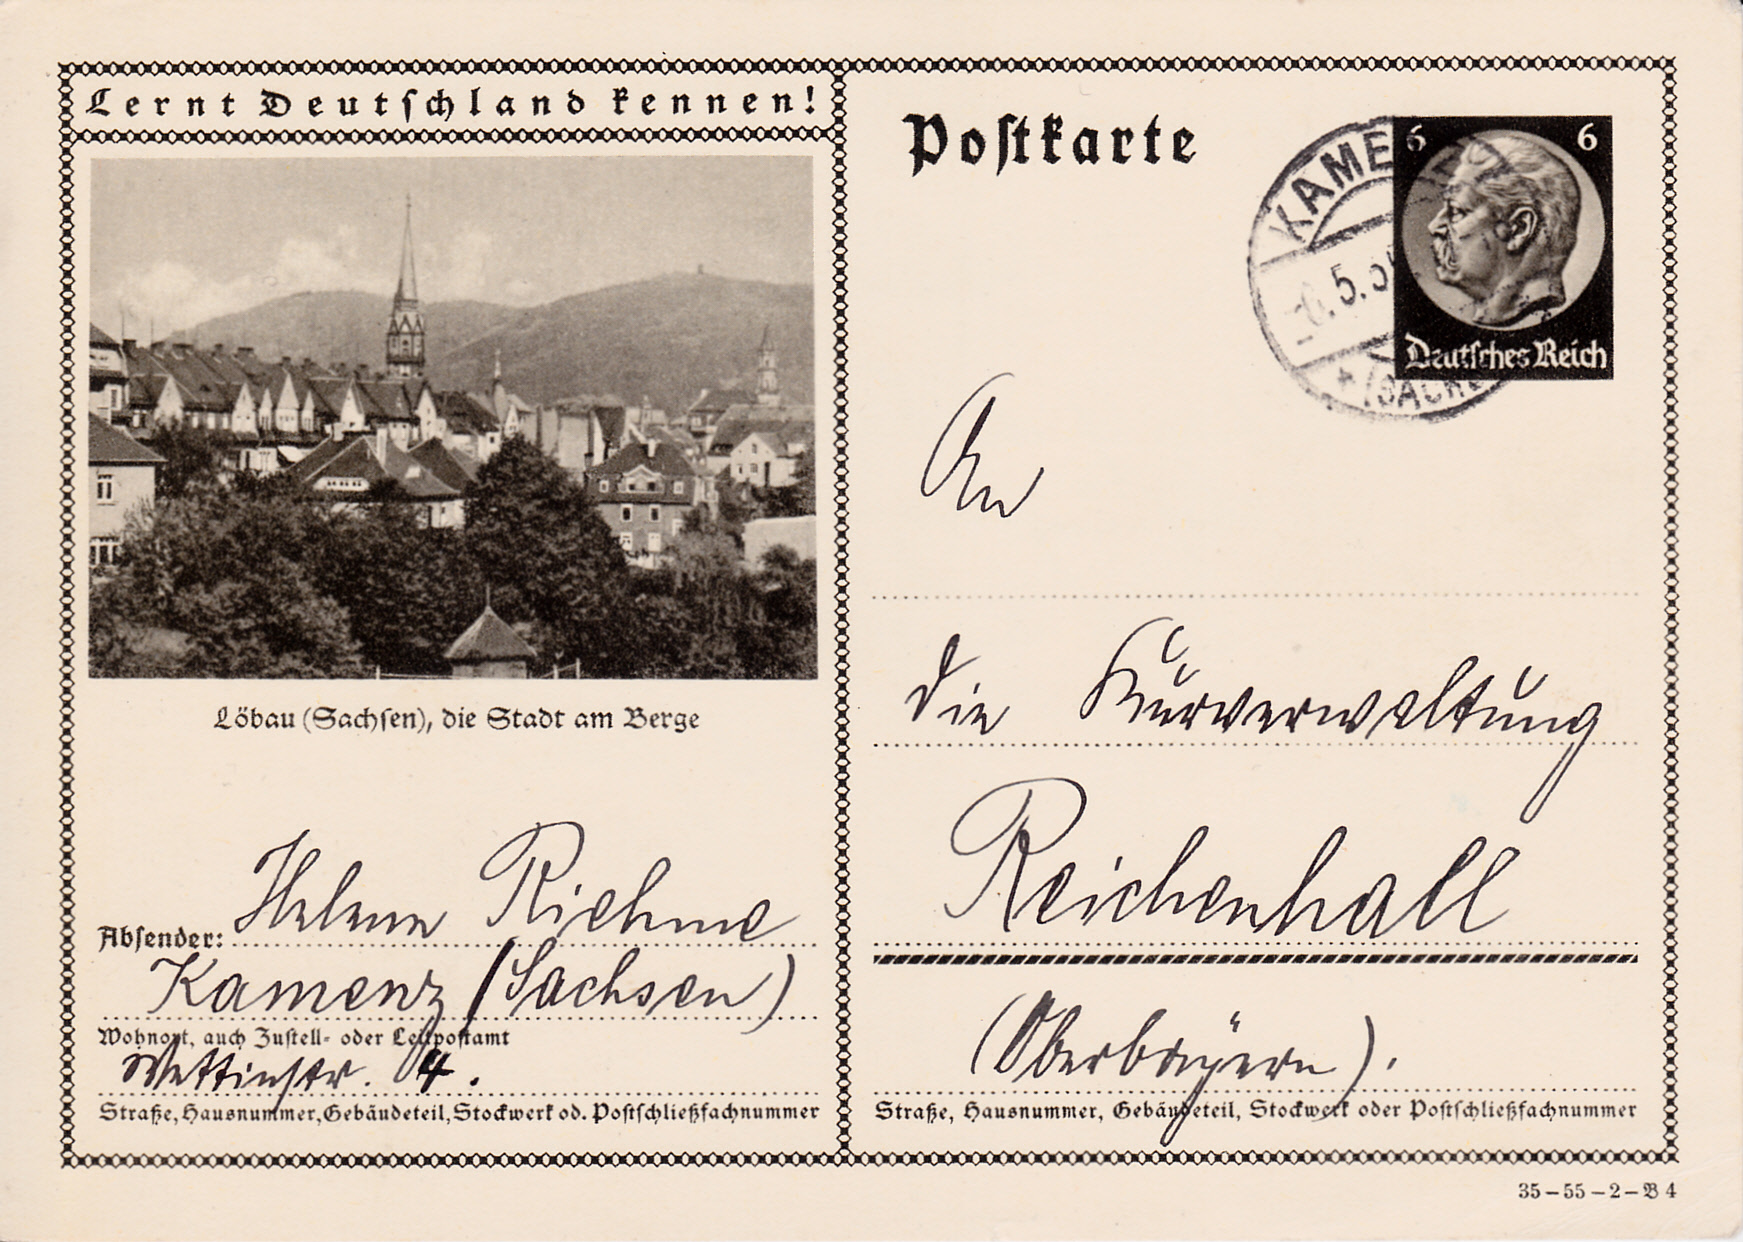 Lernt Deutschland kennen!
Postkarte
6 6
Deutsches Reich
An
die Kurverwaltung
Reichenhall
(Oberbayern).
Straße, Hausnummer, Gebäudeteil, Stockwerk oder Postschließfachnummer
Löbau (Sachsen), die Stadt am Berge
Absender: Helene Riehme
Kamenz (Sachsen)
Wohnort, auch Zustell- oder Leitpostamt
Wettinstr. 4.
Straße, Hausnummer, Gebäudeteil, Stockwerk od. Postschließfachnummer
35-55-2-B 4